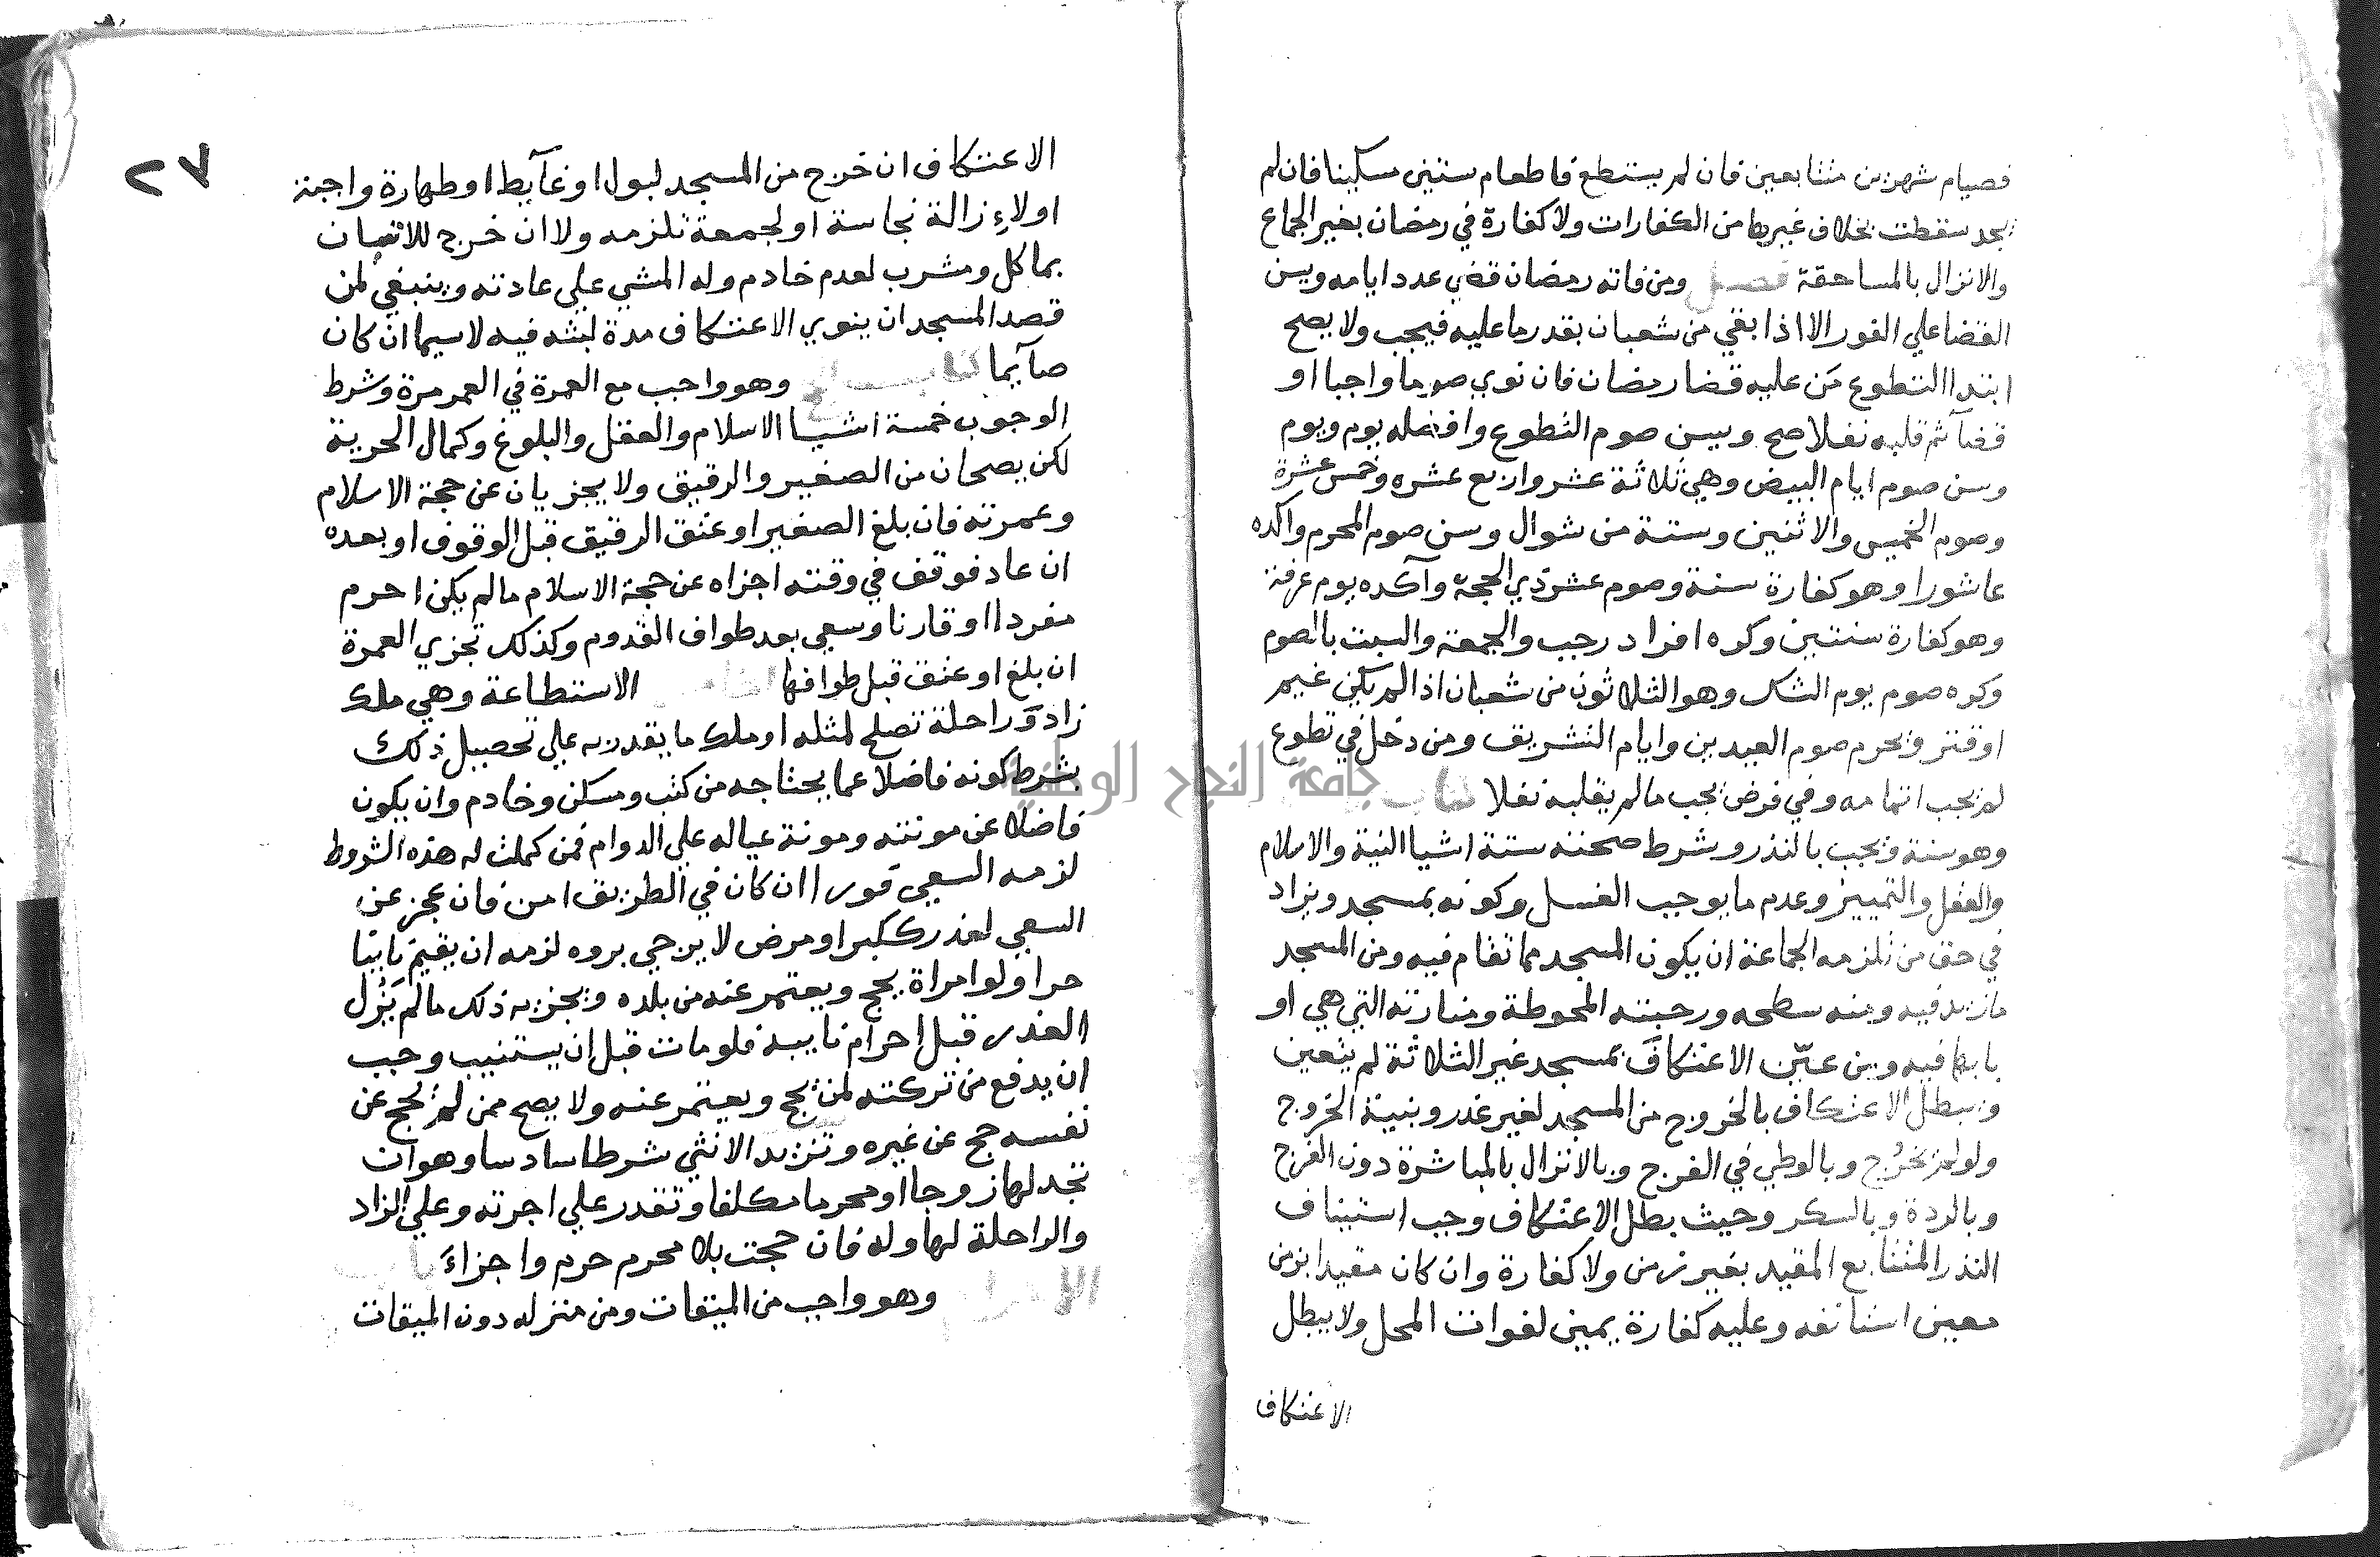 فصيام شهرين متتابعين فان لم يستطع فاطعام ستين مسكينا فان لم
يجد سقطت بخلاف غيرها من الكفارات ولا كفارة في رمضان بغير الجماع
والانزال بالمساحقة فصل ومن فاته رمضان قضي عدد ايامه ويسن
القضا علي الفور الا اذا بقي من شعبان بقدر ما عليه فيجب ولا يصح
ابتدا التطوع من عليه قضا رمضان فان نوي صوما واجبا او
قضآ ثم قلبه نفلا صح ويسن صوم التطوع وافضله يوم ويوم
وسن صوم ايام البيض وهي ثلاثة عشر واربع عشره وخمس عشرة
وصوم الخميس والاثنين وستة من شوال وسن صوم المحرم واكده
عاشورا وهو كفارة سنة وصوم عشر ذي الحجة وآكده يوم عرفة
وهو كفارة سنتين وكره افراد رجب والجمعة والسبت بالصوم
وكره صوم يوم الشك وهو الثلاثون من شعبان اذا لم يكن غيم
او قتر ويحرم صوم العيدين وايام التشريق ومن دخل في تطوع
لم يجب اتمامه وفي فرض يجب ما لم يقلبه نفلا كتاب
وهو سنة ويجب بالنذر وشرط صحته ستة اشيا النية والاسلام
والعقل والتمييز وعدم ما يوجب الغسل وكونه بمسجد ويزاد
في حق من تلزمه الجماعة ان يكون المسجد مما تقام فيه ومن المسجد
ما زيد فيه ومنه سطحه ورحبته المحوطة ومنارته التي هي او
بابها فيه ومن عيّن الاعتكاف بمسجد غير الثلاثة لم يتعين
ويبطل الاعتكاف بالخروج من المسجد لغير عذر وبنية الخروج
ولو لم يخرُج وبالوطي في الفرج وبالانزال بالمباشرة دون الفرج
وبالردة وبالسكر وحيث بطل الاعتكاف وجب استيناف
النذر المتتابع المقيد بغير زمن ولا كفارة وان كان مقيدا بزمن
معين استانفه وعليه كفارة يمين لفوات المحل ولا يبطل
الاعتكاف
٢٧
الاعتكاف ان خرج من المسجد لبول او غآيط او طهارة واجبة
او لاءِزالة نجاسة او لجمعة تلزمه ولا ان خرج للاتيان
بماكل ومشرب لعدم خادم وله المشي علي عادته وينبغي لمن
قصد المسجد ان ينوي الاعتكاف مدة لبثه فيه لا سيما ان كان
صآيما كتاب الحج وهو واجب مع العمرة في العمر مرة وشرط
الوجوب خمسة اشيا الاسلام والعقل والبلوغ وكمال الحرية
لكن يصحان من الصغير والرقيق ولا يجزيان عن حجة الاسلام
وعمرته فان بلغ الصغير او عتق الرقيق قبل الوقوف او بعده
ان عاد فوقف في وقته اجزاه عن حجة الاسلام ما لم يكن احرم
مفردا او قارنا وسعي بعد طواف القدوم وكذلك تجزي العمرة
ان بلغ او عتق قبل طوافها الاستطاعة وهي ملك
زاد وَراحلة تصلح لمثله او ملك ما يقدر به علي تحصيل ذلك
بشرط كونه فاضلا عما يحتاجه من كتب ومسكن وخادم وان يكون
فاضلا عن مونته ومونة عياله علي الدوام فمن كملت له هذه الشروط
لزمه السعي فورا ان كان في الطريق امن فان عجز عن
السعي لعذر ككبر او مرض لا يرجي بروه لزمه ان يقيم نايبا
حرا ولو امراة يحج ويعتمر عنه من بلده ويجزيه ذلك ما لم يَزُل
العذر قبل إحرام نايبه فلو مات قبل ان يستنيب وجب
ان يدفع من تركته لمن يحج ويعتمر عنه ولا يصح ممن لم يحج عن
نفسه حج عن غيره وتزيد الانثي شرطا سادسا وهو ان
تجد لها زوجا او محرما مكلفا وتقدر علي اجرته وعلي الزاد
والراحلة لها وله فان حجت بلا محرم حرم واجزاءَ باب
الاحرام وهو واجب من الميقات ومن منزله دون الميقات
جامعة النجاح الوطنية